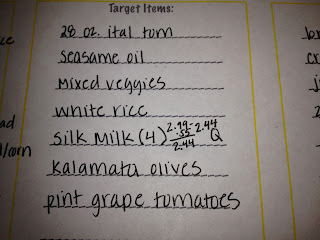 Target Items:
28 oz. ital tom
Seasame oil
Mixed veggies
white rice
Silk Milk (4) 2.99- 2.44
.55 Q
2.44
kalamata olives
pint grape tomatoes